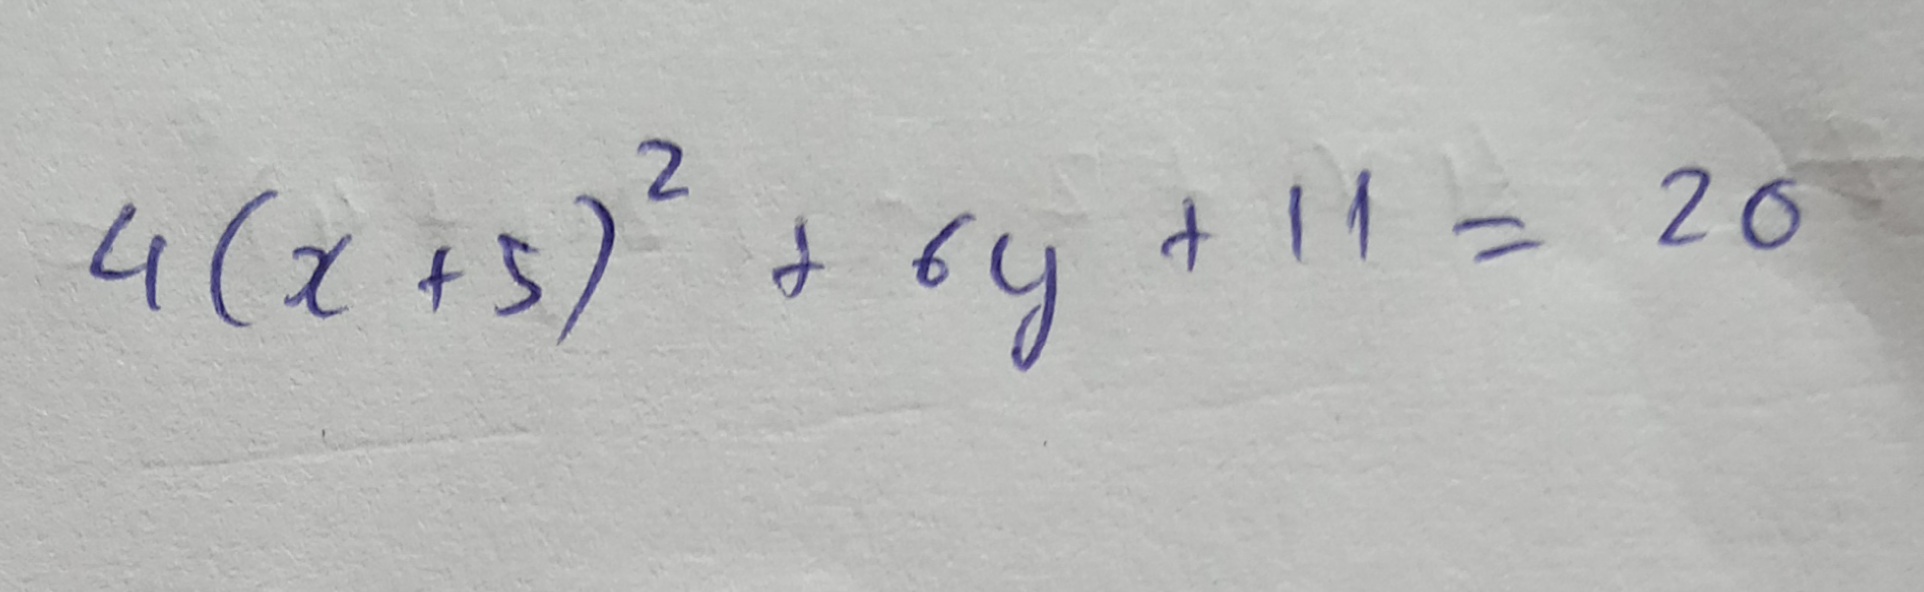 4(x+5)² + 6y + 11 = 20